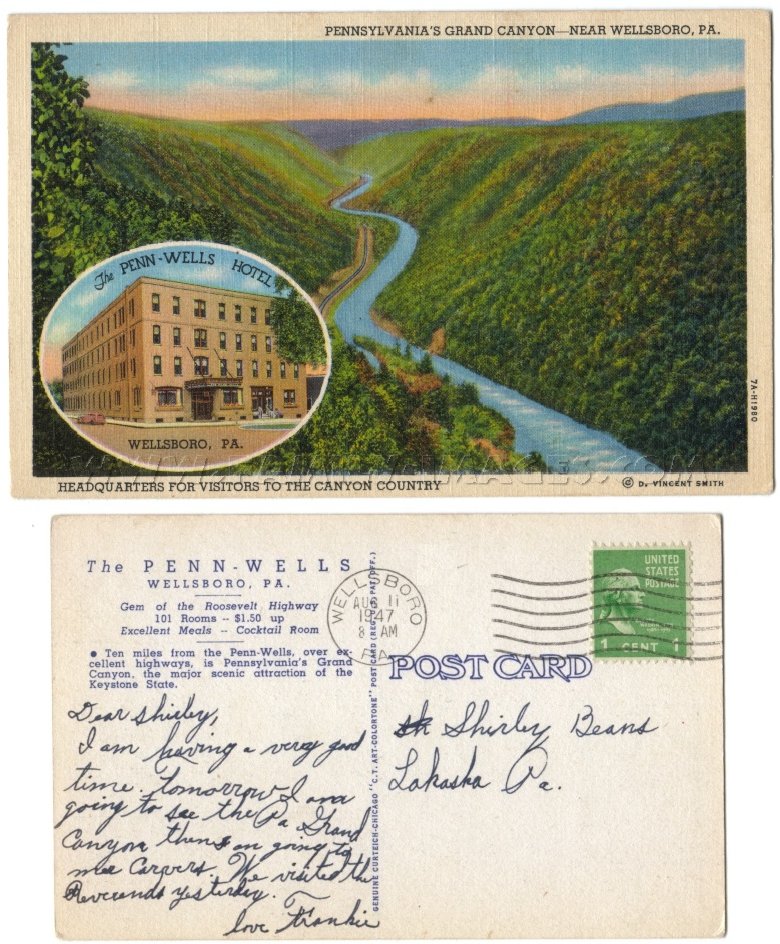 PENNSYLVANIA'S GRAND CANYON—NEAR WELLSBORO, PA.
The PENN-WELLS HOTEL
WELLSBORO, PA.
7A-H1980
HEADQUARTERS FOR VISITORS TO THE CANYON COUNTRY
© D. VINCENT SMITH
The PENN-WELLS
WELLSBORO, PA.
Gem of the Roosevelt Highway
101 Rooms -- $1.50 up
Excellent Meals -- Cocktail Room
• Ten miles from the Penn-Wells, over ex-
cellent highways, is Pennsylvania's Grand
Canyon, the major scenic attraction of the
Keystone State.
Dear Shirley,
I am having a very good
time. tomorrow I am
going to see the Pa Grand
Canyon then on going to
Carvers. We visited the
Reverends yesterday.
love Frankie
GENUINE CURTEICH-CHICAGO "C.T. ART-COLORTONE" POST CARD (REG. U.S. PAT. OFF.)
WELLSBORO
AUG 11
1947
8 AM
PA.
UNITED
STATES
POSTAGE
WASHINGTON
1 CENT 1
POST CARD
Shirley Beans
Lahaska Pa.